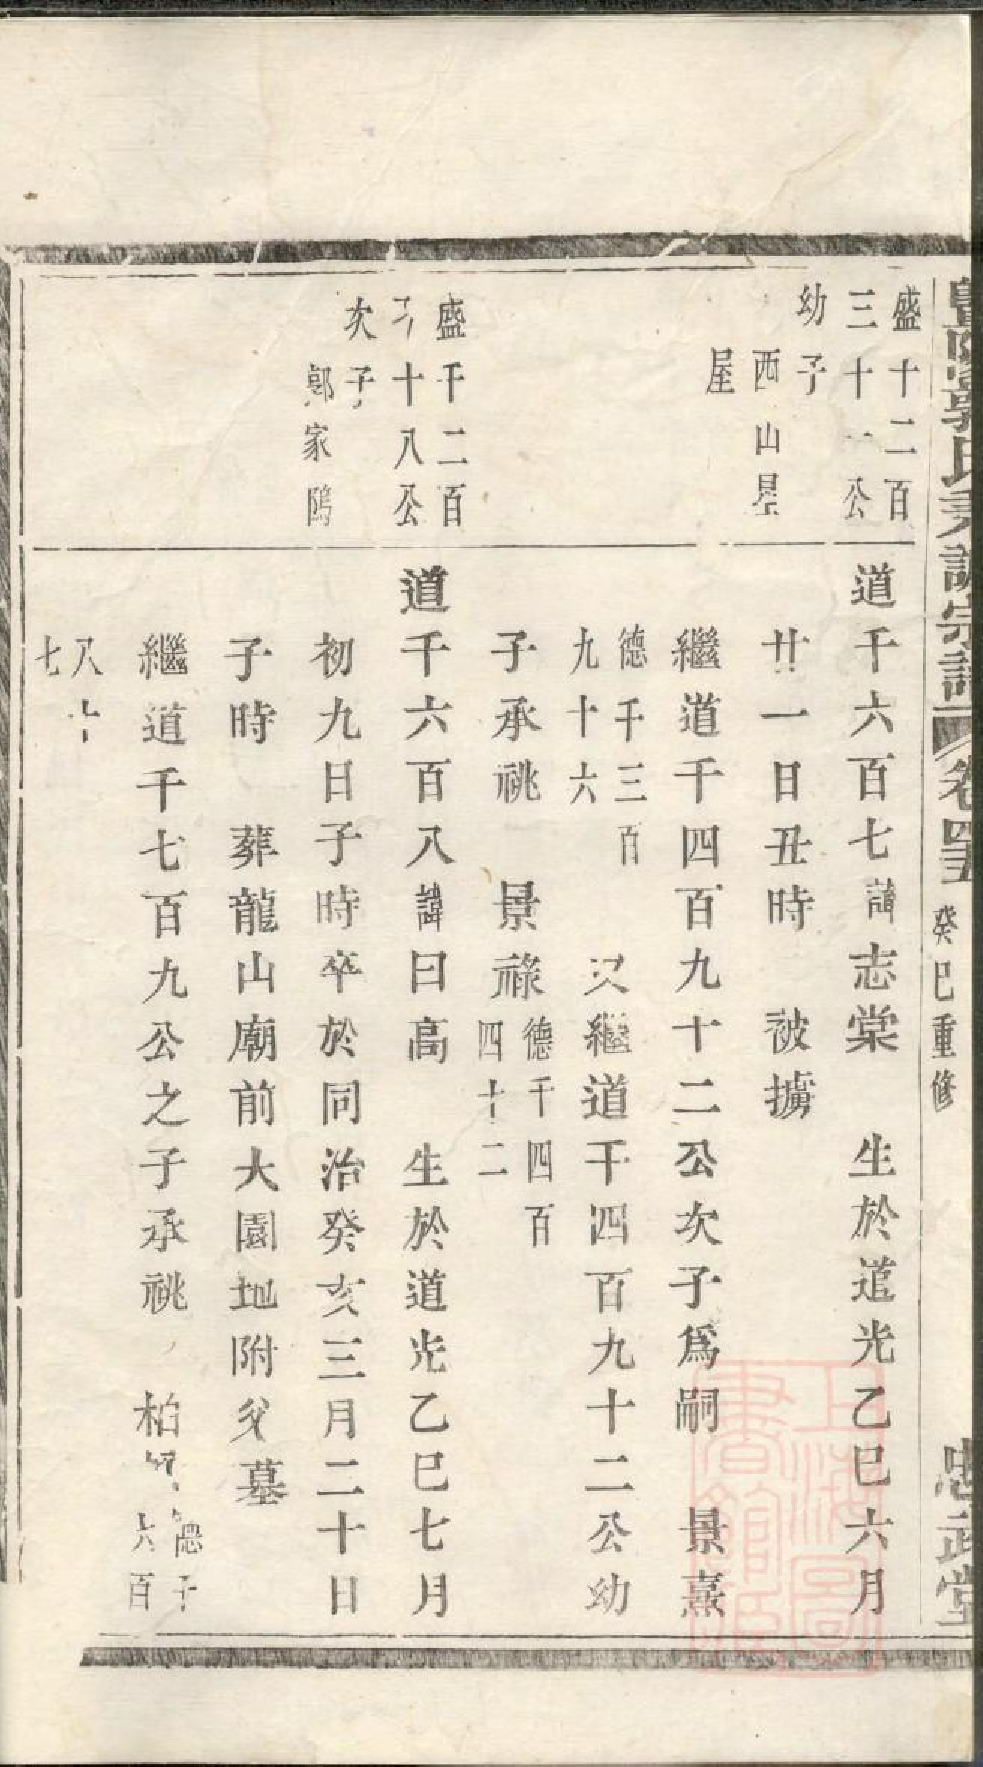 暨陽郭氏尹譜宗譜
卷四五
癸巳重修
忠武堂
盛十二百
三十一公
幼子
西山壆
屋
道千六百七諱志棠 生於道光乙巳六月
廿一日丑時 被擄
繼道千四百九十二公次子爲嗣 景熹
德千三百
九十六 又繼道千四百九十二公幼
子承祧 景祿德千四百
四十二
盛千二百
十八公
次子
郭家隖
道千六百八諱曰高 生於道光乙巳七月
初九日子時卒於同治癸亥三月二十日
子時 葬龍山廟前大園地附父墓
繼道千七百九公之子承祧 柏 德千
六百
八十
七